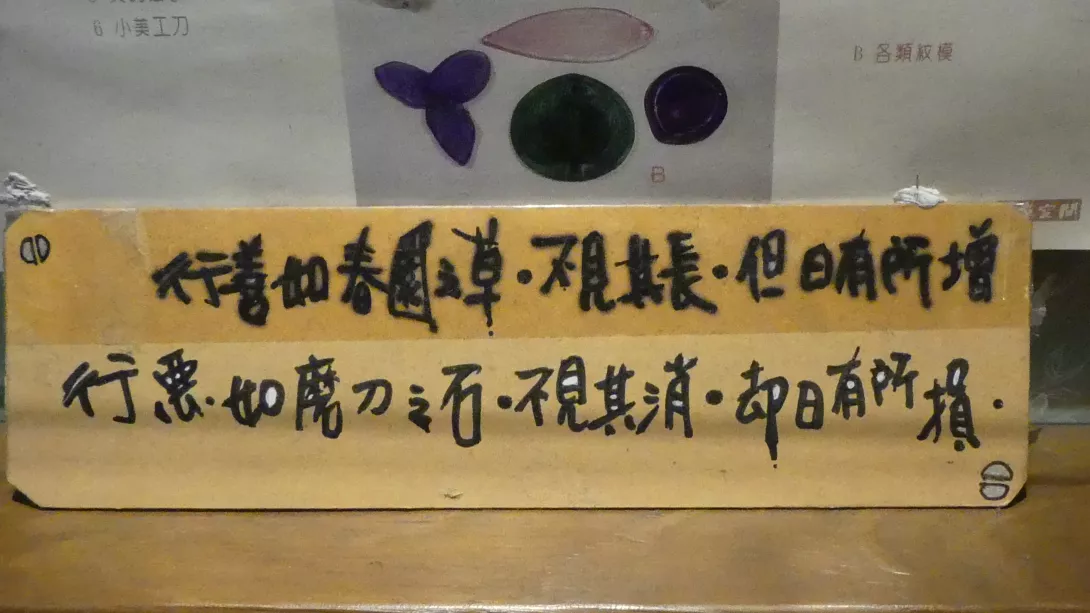 6 小美工刀
B 各類紋模
B
行善如春園之草·不見其長·但日有所增
行惡·如磨刀之石·不見其消·却日有所損·